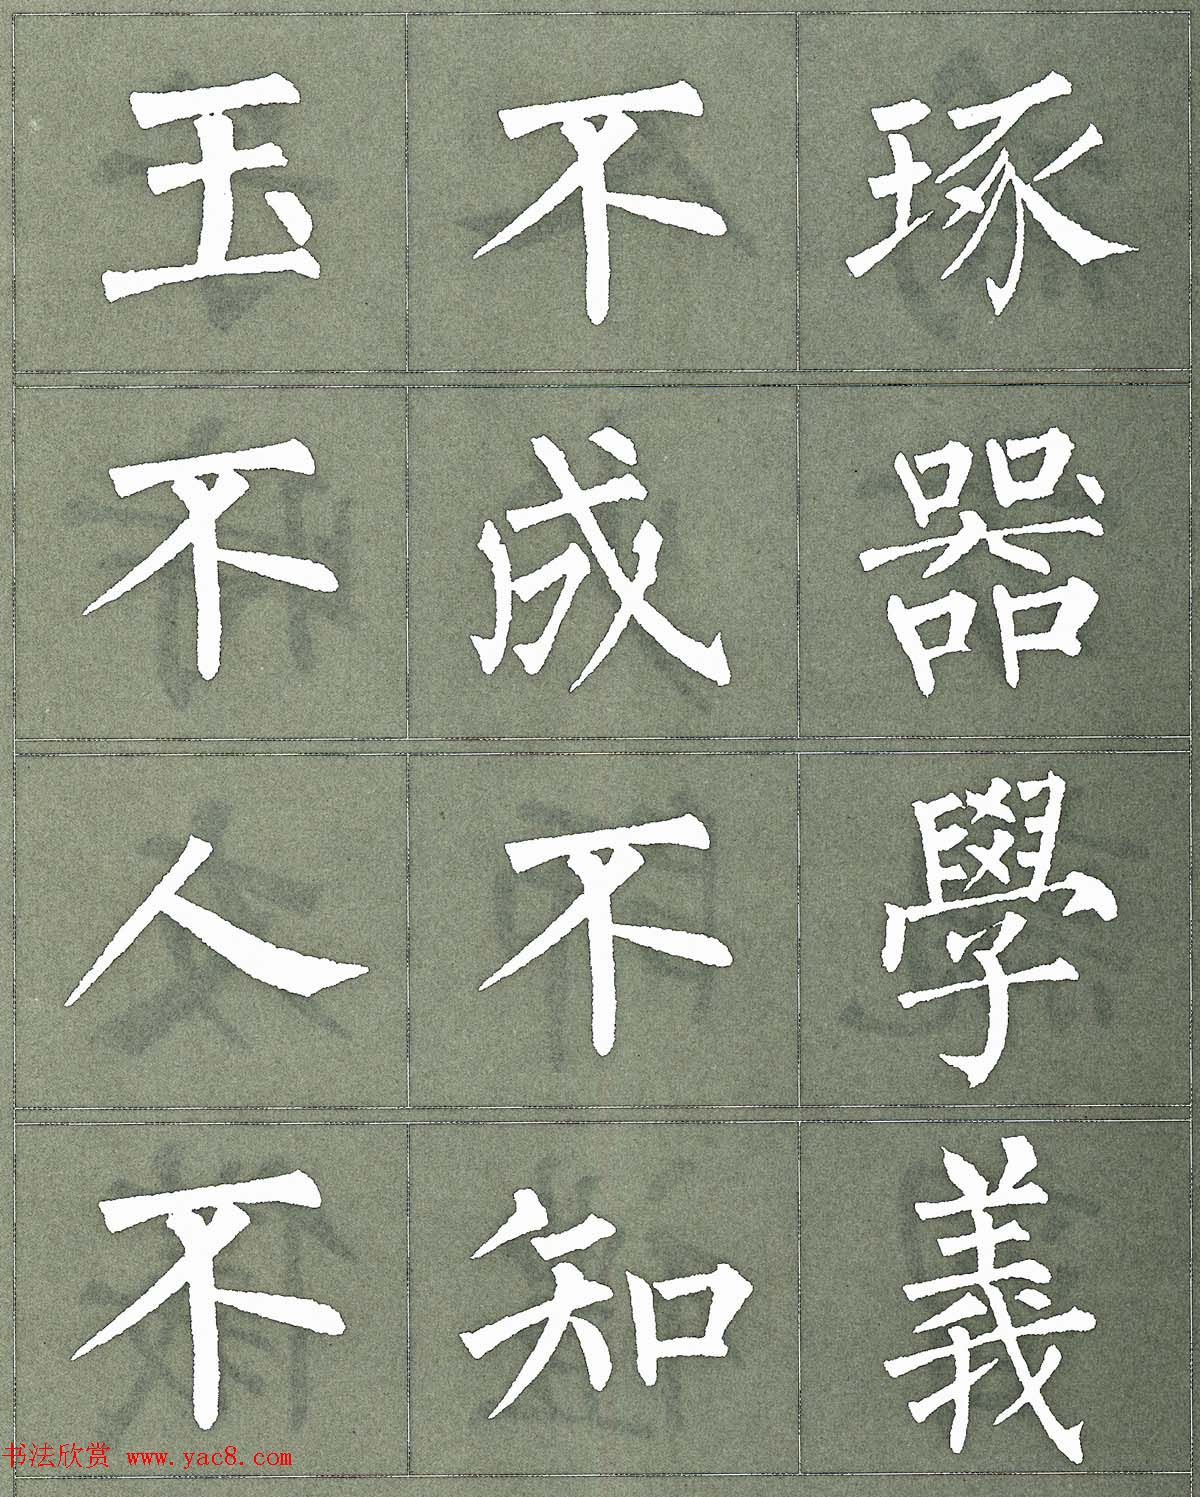 玉不琢
不成器
人不學
不知義
书法欣赏 www.yac8.com